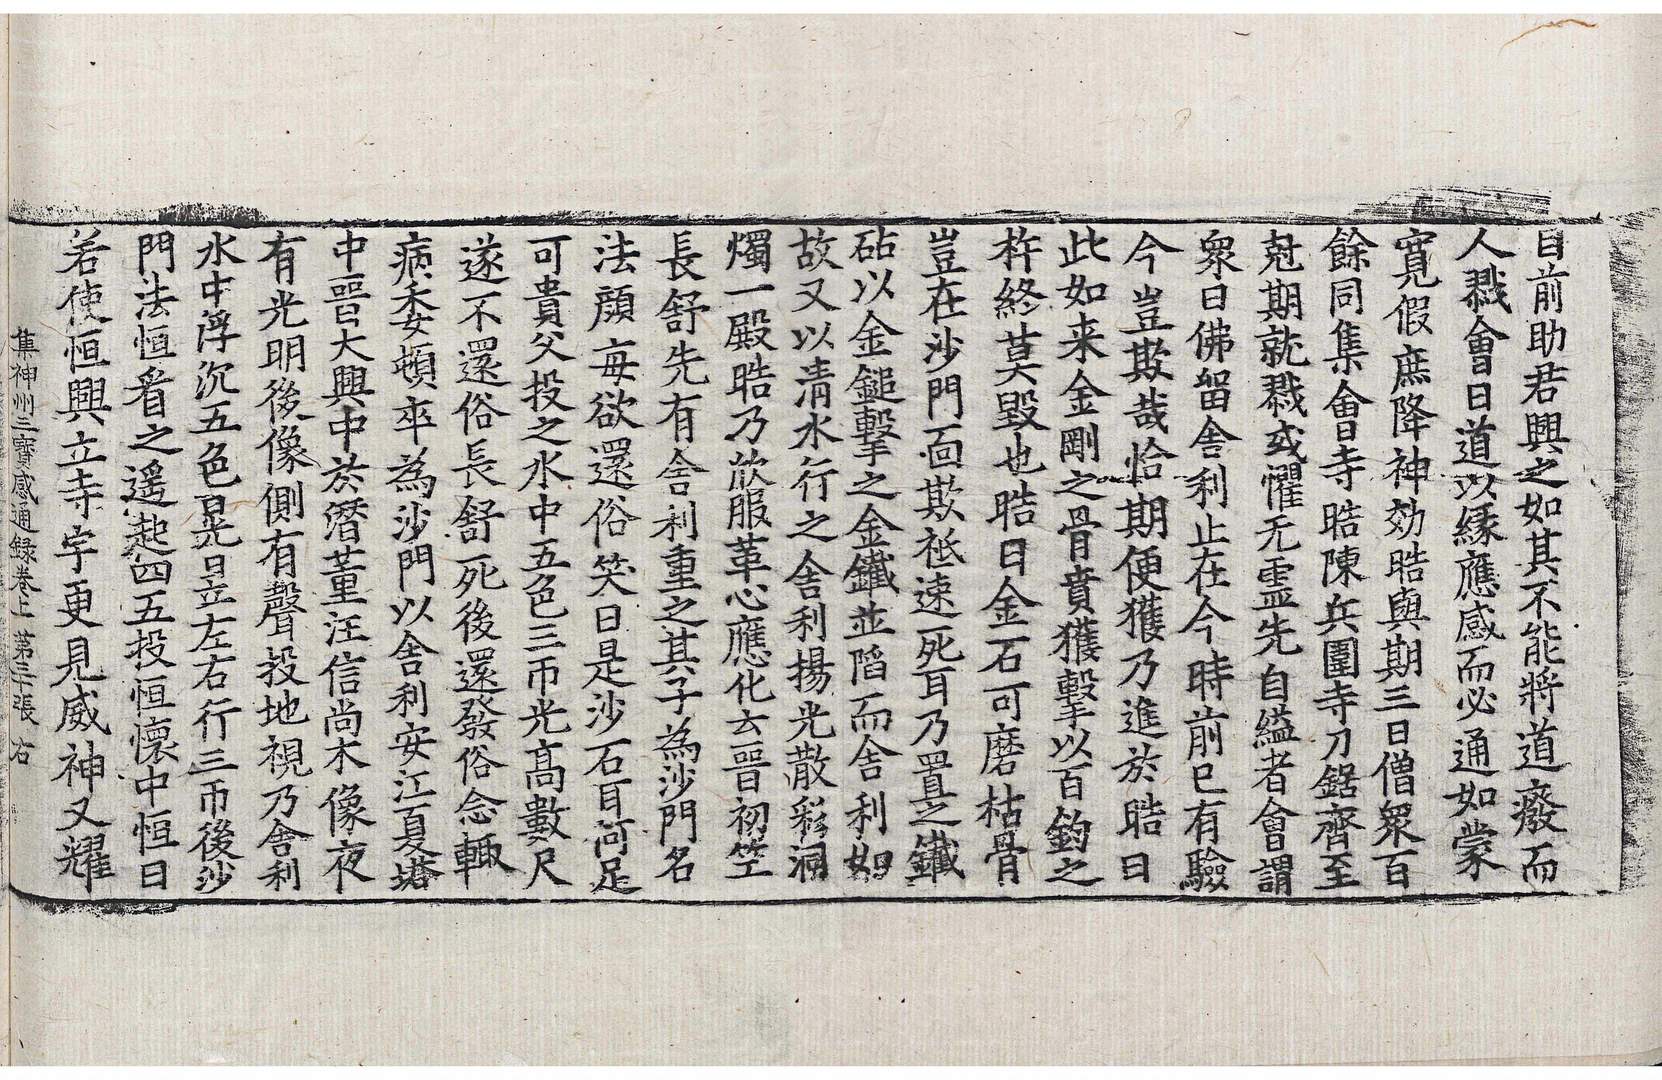 目前助君興之如其不能將道廢而
人戮會曰道以緣應感而必通如蒙
寬假庶降神効晧與期三日僧眾百
餘同集會寺晧陳兵圍寺刀鋸齊至
尅期就戮或懼无靈先自縊者會謂
眾曰佛留舍利止在今時前已有驗
今豈欺哉恰期便獲乃進於晧曰
此如来金剛之骨賁獲擊以百鈞之
杵終莫毀也晧曰金石可磨枯骨
豈在沙門面欺祗速死耳乃置之鐵
砧以金鎚擊之金鐵並陷而舍利如
故又以清水行之舍利揚光散彩洞
燭一殿晧乃歛服革心應化玄晉初竺
長舒先有舍利重之其子為沙門名
法顔每欲還俗笑曰是沙石耳何足
可貴父投之水中五色三帀光髙數尺
遂不還俗長舒死後還發俗念輙
病委頓卒為沙門以舍利安江夏塔
中晉大興中於潛董汪信尚木像夜
有光明後像側有聲投地視乃舍利
水中浮沉五色晃昱左右行三帀後沙
門法恒看之遥起四五投恒懷中恒曰
若使恒興立寺宇更見威神又耀
集神州三寶感通録卷上 第三張 右